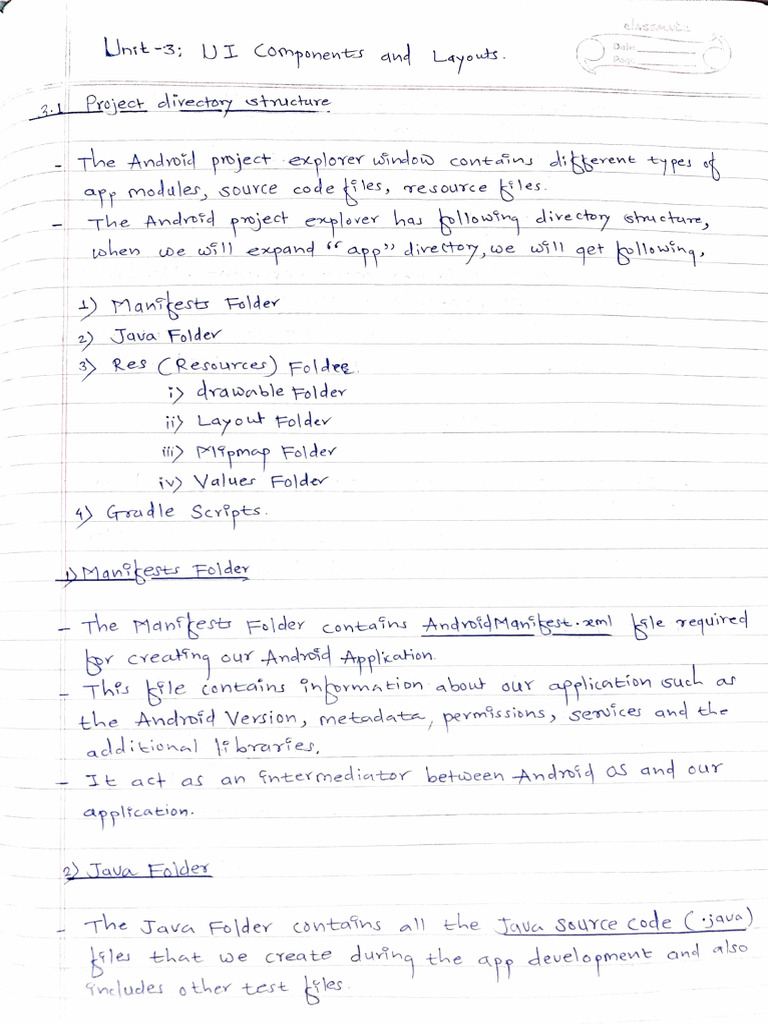 classmate
Date
Page
Unit-3: UI Components and Layouts.
3.1 Project directory structure
- The Android project explorer window contains different types of
app modules, source code files, resource files.
- The Android project explorer has following directory structure,
when we will expand "app" directory, we will get following,
1) Manifests Folder
2) Java Folder
3) Res (Resources) Folder.
i) drawable Folder
ii) Layout Folder
iii) Mipmap Folder
iv) Values Folder
4) Gradle Scripts.
1) Manifests Folder
- The Manifests Folder contains AndroidManifest.xml file required
for creating our Android Application.
- This file contains information about our application such as
the Android Version, metadata, permissions, services and the
additional libraries.
- It act as an intermediator between Android OS and our
application.
2) Java Folder
- The Java Folder contains all the Java source code (.java)
files that we create during the app development and also
includes other test files.